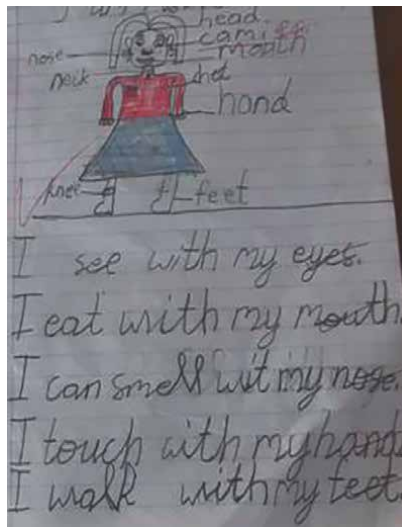 head
nose
mouth
neck
hand
knee
feet
I see with my eyes.
I eat with my mouth.
I can smell wit my nose.
I touch with my hand.
I walk with my feet.